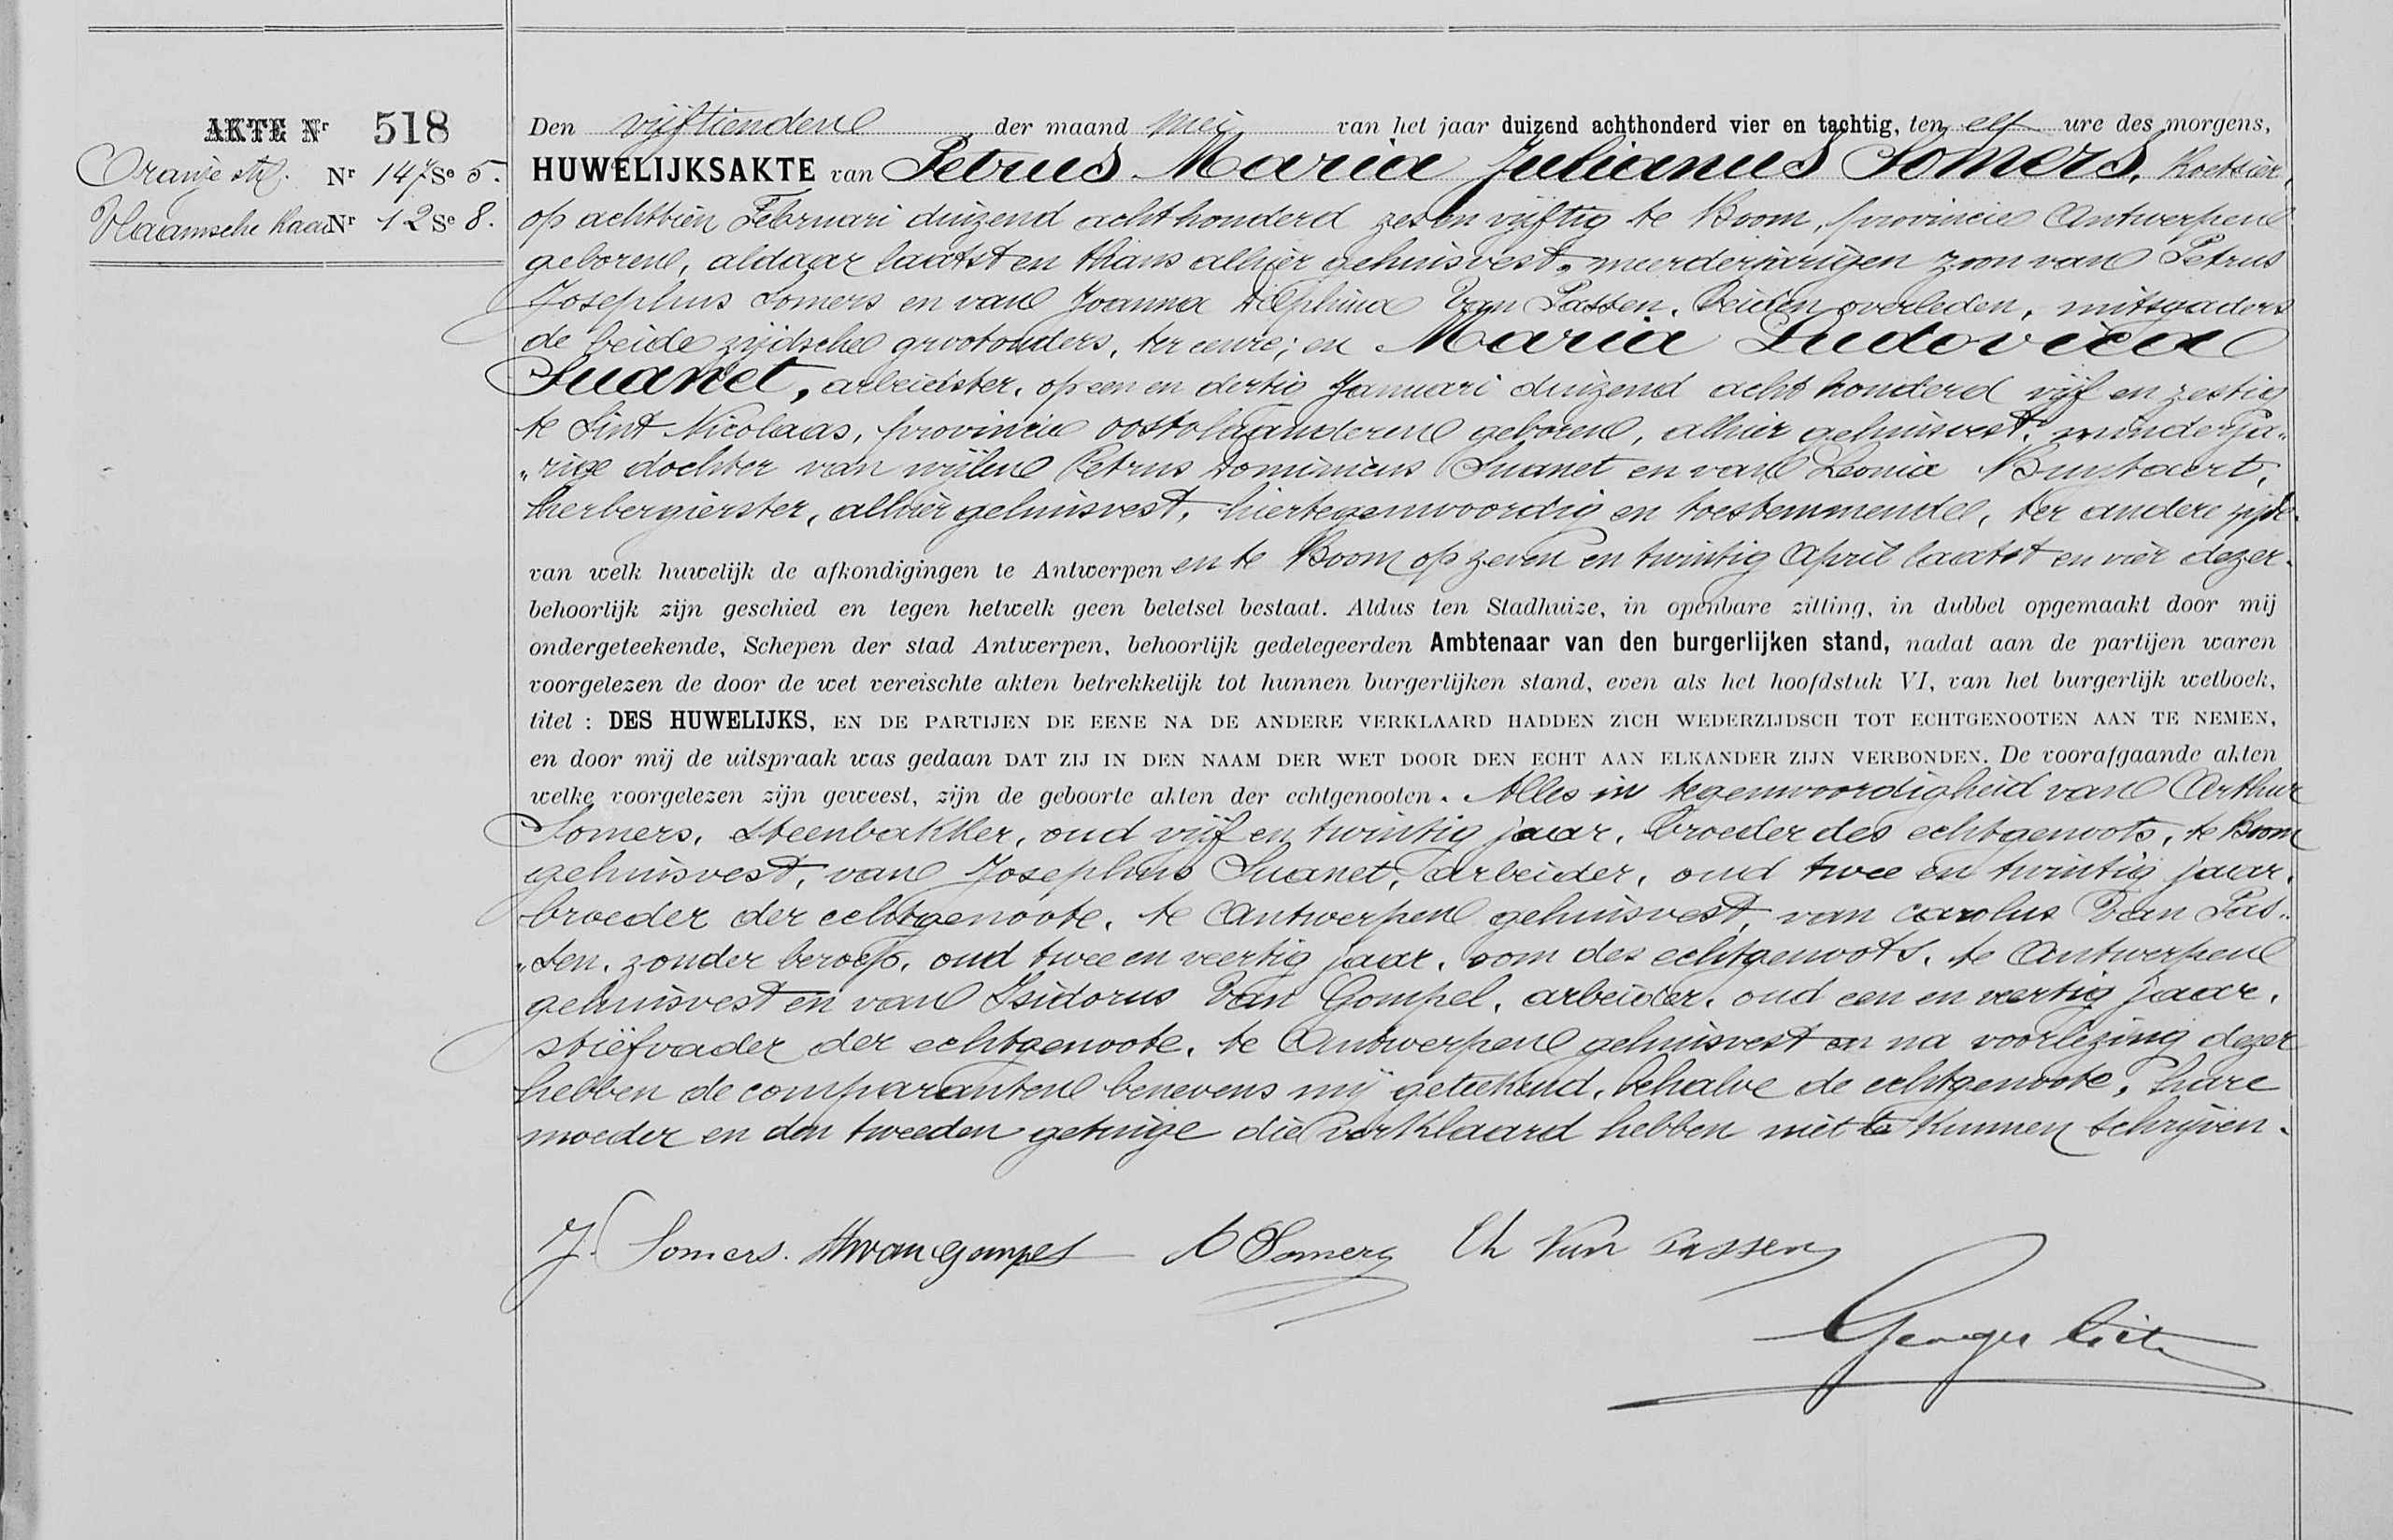 AKTE Nr 518
Oranje str. Nr 147 Se 5.
Vlaamsche kaai Nr 12 Se 8.
Den vijftienden der maand Mei van het jaar duizend achthonderd vier en tachtig, ten elf ure des morgens,
HUWELIJKSAKTE van Petrus Maria Julianus Somers, koetsier,
op achttien Februari duizend acht honderd zes en vijftig te Boom, provincie Antwerpen
geboren, aldaar laatst en thans alhier gehuisvest, meerderjarigen zoon van Petrus
Josephus Somers en van Joanna Delphina Van Passen, beiden overleden, mitsgaders
de beide zijdsche grootouders, ter eenre; en Maria Ludovica
Suanet, arbeidster, op een en dertig Januari duizend acht honderd vijf en zestig
te Sint Nicolaas, provincie oostvlaanderen geboren, alhier gehuisvest, minderja„
„rige dochter van wijlen Petrus Dominicus Suanet en van Leonia Buytaert,
herbergierster, alhier gehuisvest, hiertegenwoordig en toestemmende, ter andere zijde.
van welk huwelijk de afkondigingen te Antwerpen en te Boom op zeven en twintig April laatst en vier dezer.
behoorlijk zijn geschied en tegen hetwelk geen beletsel bestaat. Aldus ten Stadhuize, in openbare zitting, in dubbel opgemaakt door mij
ondergeteekende, Schepen der stad Antwerpen, behoorlijk gedelegeerden Ambtenaar van den burgerlijken stand, nadat aan de partijen waren
voorgelezen de door de wet vereischte akten betrekkelijk tot hunnen burgerlijken stand, even als het hoofdstuk VI, van het burgerlijk wetboek,
titel : DES HUWELIJKS, EN DE PARTIJEN DE EENE NA DE ANDERE VERKLAARD HADDEN ZICH WEDERZIJDSCH TOT ECHTGENOOTEN AAN TE NEMEN,
en door mij de uitspraak was gedaan DAT ZIJ IN DEN NAAM DER WET DOOR DEN ECHT AAN ELKANDER ZIJN VERBONDEN. De voorafgaande akten
welke voorgelezen zijn geweest, zijn de geboorte akten der echtgenooten. Alles in tegenwoordigheid van Arthur
Somers, steenbakker, oud vijf en twintig jaar, broeder des echtgenoots, te Boom
gehuisvest, van Josephus Suanet, arbeider, oud twee en twintig jaar,
broeder der echtgenoote, te Antwerpen gehuisvest, van Carolus Van Pas„
„sen, zonder beroep, oud twee en veertig jaar, oom des echtgenoots, te Antwerpen
gehuisvest en van Isidorus Van Gompel, arbeider, oud een en veertig jaar,
stiefvader der echtgenoote, te Antwerpen gehuisvest en na voorlezing dezer
hebben de comparanten benevens mij geteekend, behalve de echtgenoote, hare
moeder en den tweeden getuige die verklaard hebben niet te kunnen schrijven.
J. Somers. van gompel A Somers Ch Van Passen